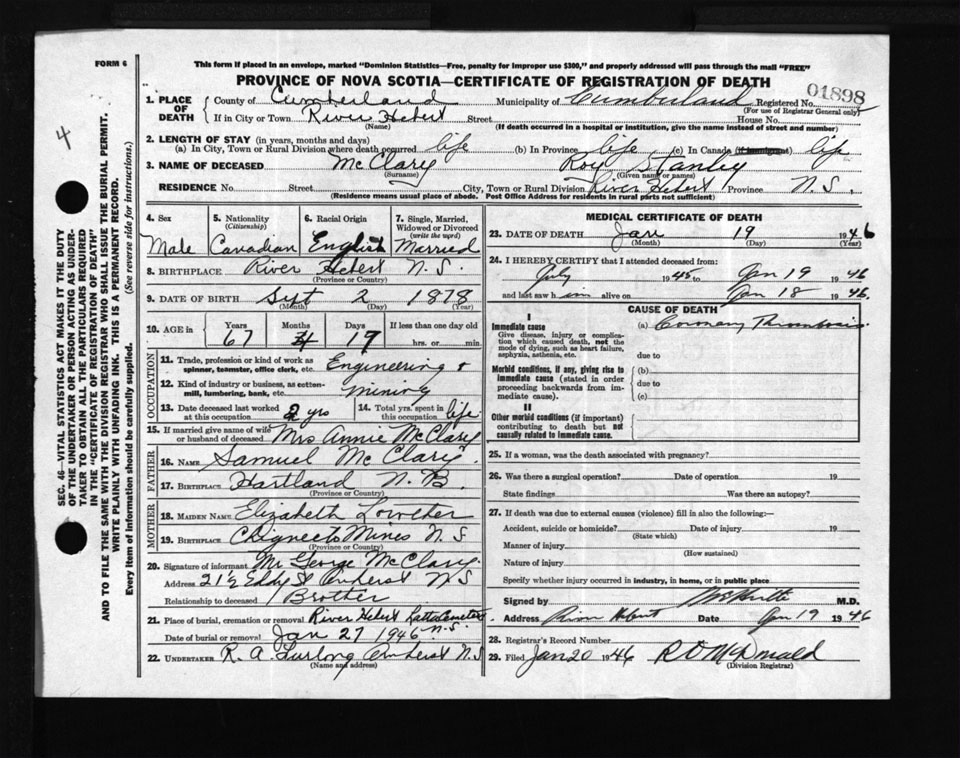 FORM 6
This form if placed in an envelope, marked "Dominion Statistics—Free, penalty for improper use $300," and properly addressed will pass through the mail "FREE"
PROVINCE OF NOVA SCOTIA—CERTIFICATE OF REGISTRATION OF DEATH
01898
4
SEC. 46—VITAL STATISTICS ACT MAKES IT THE DUTY OF THE UNDERTAKER OR PERSON ACTING AS UNDERTAKER TO OBTAIN ALL THE PARTICULARS REQUIRED IN THE "CERTIFICATE OF REGISTRATION OF DEATH" AND TO FILE THE SAME WITH THE DIVISION REGISTRAR WHO SHALL ISSUE THE BURIAL PERMIT.
WRITE PLAINLY WITH UNFADING INK. THIS IS A PERMANENT RECORD.
Every item of information should be carefully supplied. (See reverse side for instructions.)
1. PLACE OF DEATH { County of Cumberland Municipality of Cumberland Registered No.
(For use of Registrar General only)
If in City or Town River Hebert Street House No.
(Name) (If death occurred in a hospital or institution, give the name instead of street and number)
2. LENGTH OF STAY (in years, months and days)
(a) In City, Town or Rural Division where death occurred life (b) In Province life (c) In Canada (if immigrant) life
3. NAME OF DECEASED McClary Roy Stanley
(Surname) (Given name or names)
RESIDENCE No. Street City, Town or Rural Division River Hebert Province N.S.
(Residence means usual place of abode. Post Office Address for residents in rural parts not sufficient)
4. Sex 5. Nationality (Citizenship) 6. Racial Origin 7. Single, Married, Widowed or Divorced (write the word)
Male Canadian English Married
8. BIRTHPLACE River Hebert N.S.
(Province or Country)
9. DATE OF BIRTH Sept 2 1878
(Month) (Day) (Year)
10. AGE in Years Months Days If less than one day old
67 4 17 hrs. or min
OCCUPATION
11. Trade, profession or kind of work as spinner, teamster, office clerk, etc. Engineering +
12. Kind of industry or business, as cotton-mill, lumbering, bank, etc. mining
13. Date deceased last worked at this occupation 2 yrs 14. Total yrs. spent in this occupation life
15. If married give name of wife or husband of deceased Mrs Annie McClary
FATHER
16. NAME Samuel McClary
17. BIRTHPLACE Hartland N.B.
(Province or Country)
MOTHER
18. MAIDEN NAME Elizabeth Lowther
19. BIRTHPLACE Chignecto Mines N.S
(Province or Country)
20. Signature of informant Mr George McClary
Address 21½ Eddy St Amherst N S
Relationship to deceased Brother
21. Place of burial, cremation or removal River Hebert Cemetery N.S.
Date of burial or removal Jan 27 1946
22. UNDERTAKER R. A. Furlong Amherst N.S
(Name and address)
MEDICAL CERTIFICATE OF DEATH
23. DATE OF DEATH Jan 19 1946
(Month) (Day) (Year)
24. I HEREBY CERTIFY that I attended deceased from:
July 1945 to Jan 19 1946
and last saw him alive on Jan 18 1946.
CAUSE OF DEATH
I
Immediate cause
Give disease, injury or complication which caused death, not the mode of dying, such as heart failure, asphyxia, asthenia, etc.
(a) Coronary Thrombosis
due to
Morbid conditions, if any, giving rise to immediate cause (stated in order proceeding backwards from immediate cause).
(b)
due to
(c)
II
Other morbid conditions (if important) contributing to death but not causally related to immediate cause.
25. If a woman, was the death associated with pregnancy?
26. Was there a surgical operation? Date of operation 19
State findings Was there an autopsy?
27. If death was due to external causes (violence) fill in also the following:—
Accident, suicide or homicide? Date of injury 19
(State which)
Manner of injury
(How sustained)
Nature of injury
Specify whether injury occurred in industry, in home, or in public place
Signed by M.D.
Address River Hebert Date Jan 19 1946
28. Registrar's Record Number
29. Filed Jan 20 1946 R D McDonald
(Division Registrar)